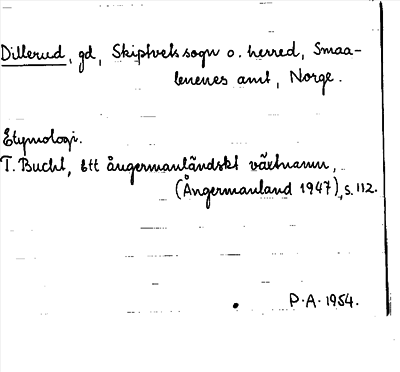 Dillerud, gd, Skiptvets sogn o. herred, Smaa-
lenenes amt, Norge.
Etymologi.
T. Bucht, Ett ångermanländskt växtnamn,
(Ångermanland 1947), s. 112.
P.A. 1954.